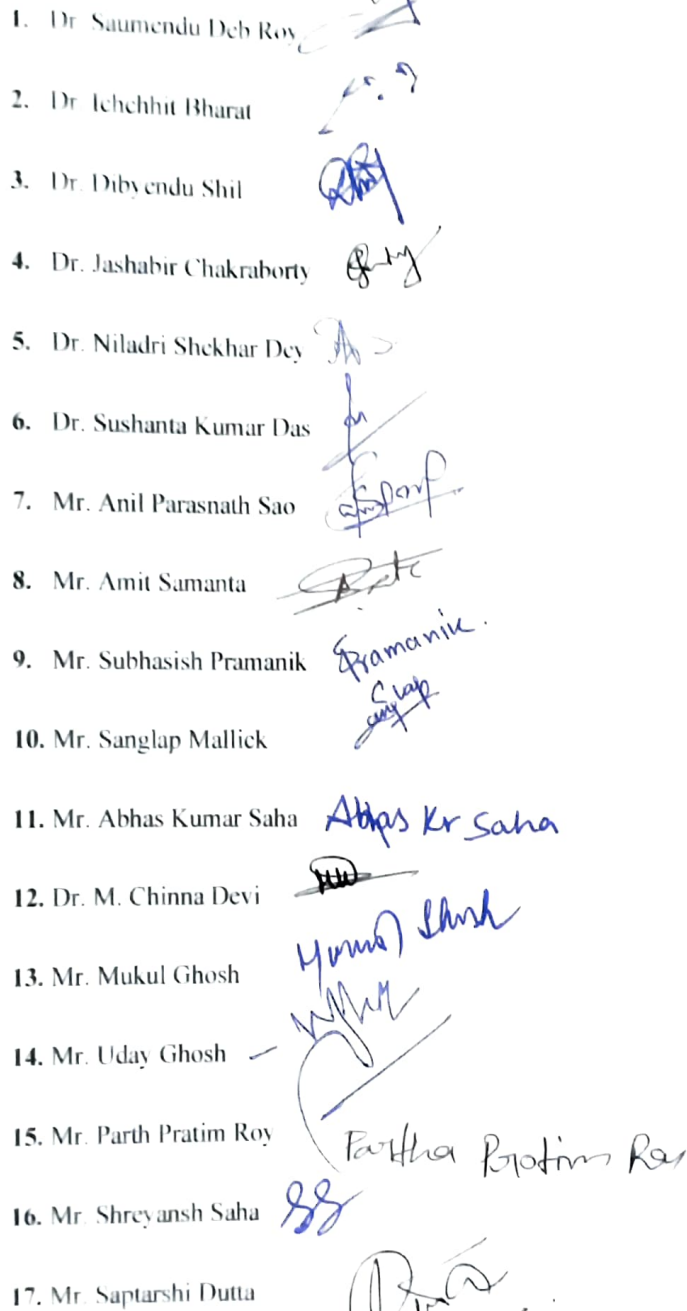 1. Dr Saumendu Deb Roy
2. Dr Ichchhit Bharat
3. Dr. Dibyendu Shil
4. Dr. Jashabir Chakraborty
5. Dr. Niladri Shekhar Dey
6. Dr. Sushanta Kumar Das
7. Mr. Anil Parasnath Sao
8. Mr. Amit Samanta
9. Mr. Subhasish Pramanik Pramanik.
10. Mr. Sanglap Mallick
11. Mr. Abhas Kumar Saha Abhas Kr Saha
12. Dr. M. Chinna Devi
13. Mr. Mukul Ghosh Mukul Ghosh
14. Mr. Uday Ghosh –
15. Mr. Parth Pratim Roy Partha Pratim Roy
16. Mr. Shreyansh Saha SS
17. Mr. Saptarshi Dutta